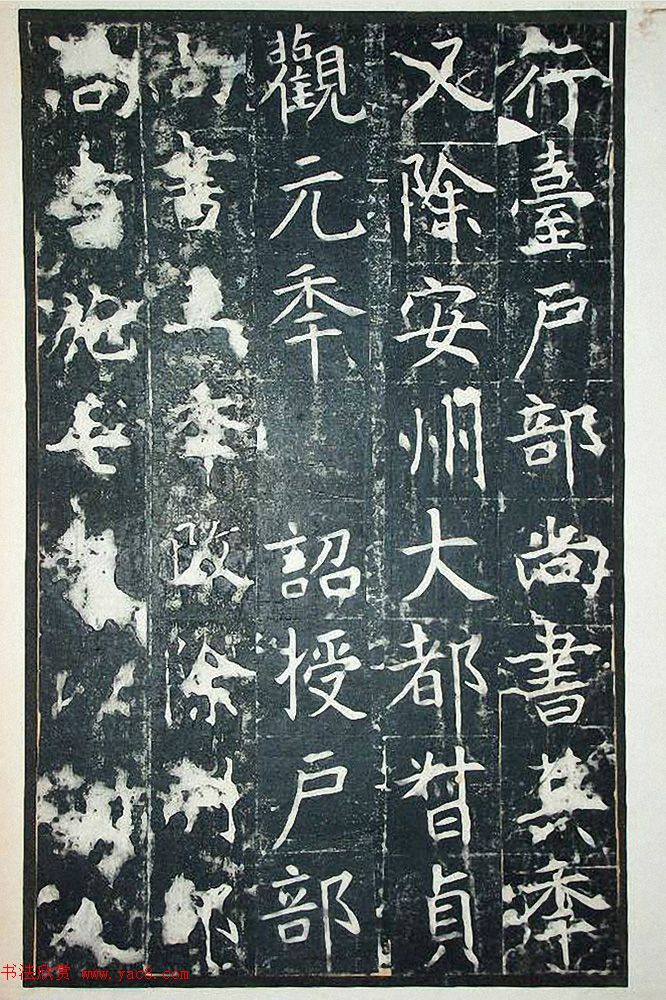 行臺戶部尚書其年
又除安州大都督貞
觀元年 詔授戶部
尚書年改除刑部
尚書以
书法欣赏 www.yac8.com